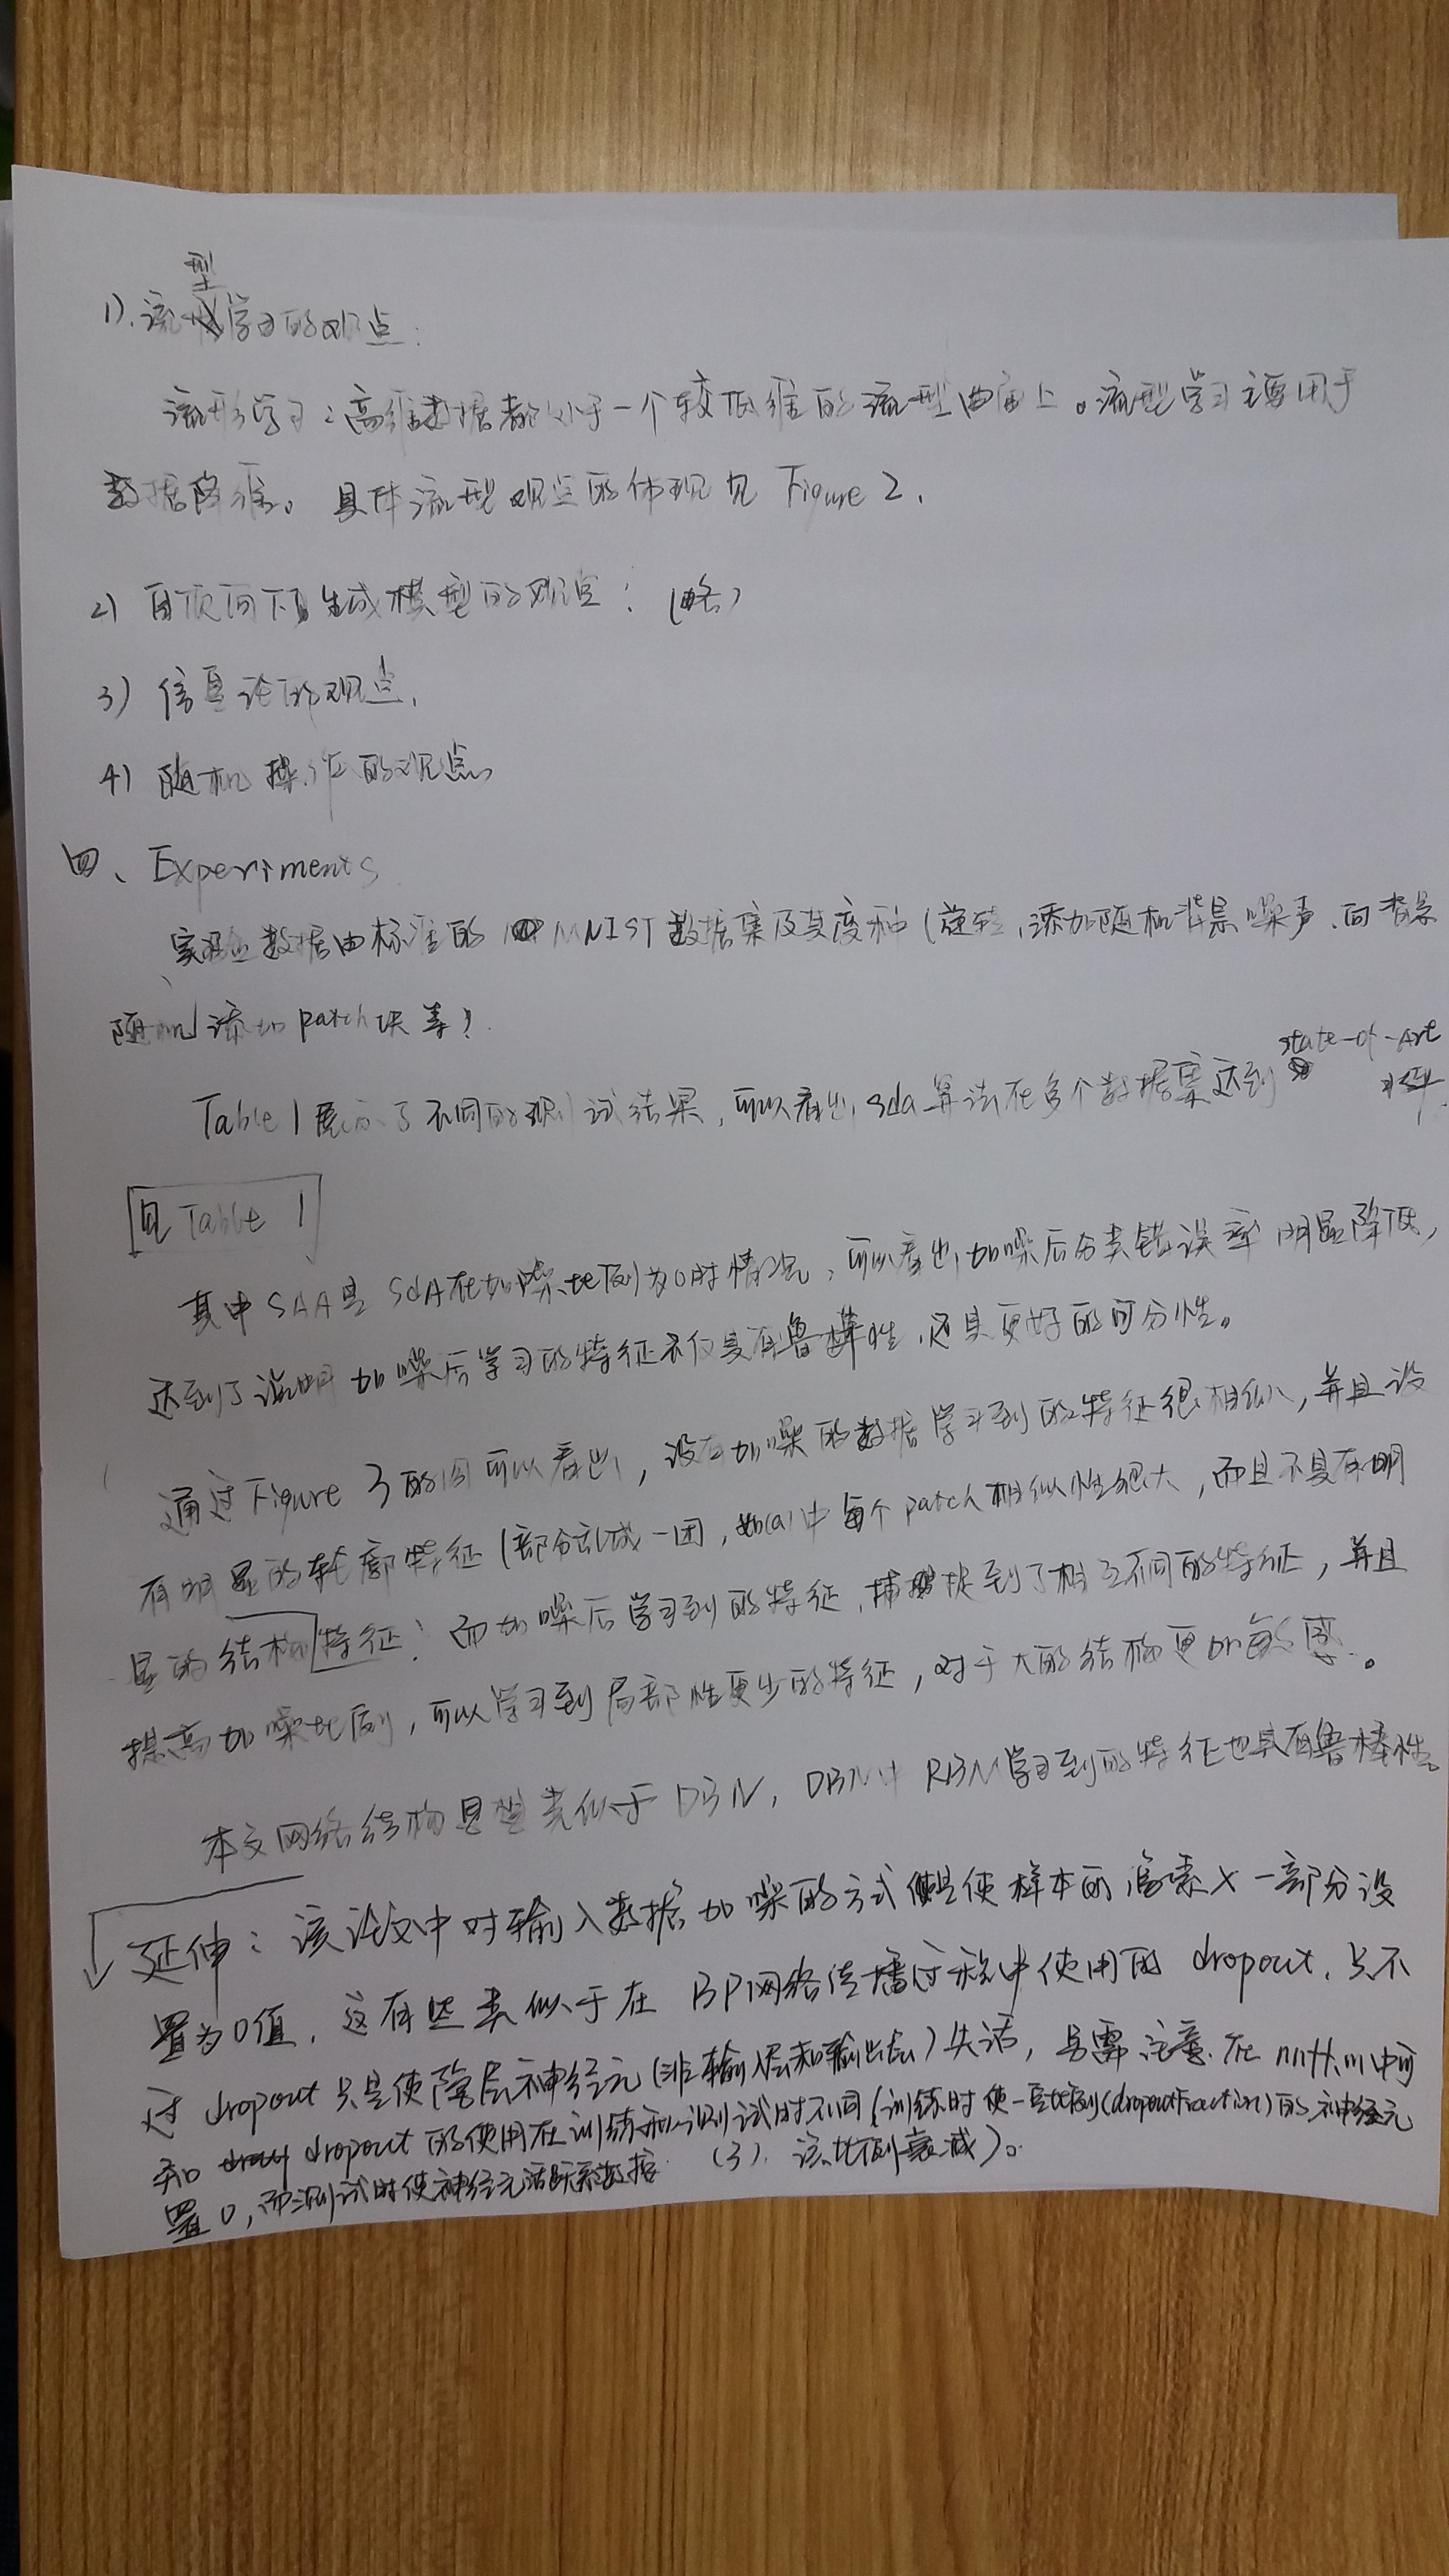 1). 流型学习的观点:
流形学习:高维数据都处于一个较低维的流型曲面上。流型学习主要用于
数据降维。具体流型观点的体现见 Figure 2.
2) 自顶向下生成模型的观点:(略)
3) 信息论的观点.
4) 随机操作的观点
四、Experiments
实验数据由标准的 MNIST 数据集及其变种(旋转,添加随机背景噪声,向背景
随机添加patch块等)
Table 1 展示了不同的测试结果,可以看出,sda算法在多个数据集达到 state-of-Art
水平.
见 Table 1
其中SAA是 SdA在加噪比例为0时情况,可以看出,加噪后分类错误率明显降低,
达到了说明加噪后学习的特征不仅具有鲁棒性,还具更好的可分性。
通过Figure 3的图可以看出,没有加噪的数据学习到的特征很相似,并且没
有明显的轮廓特征(部分乱成一团,如(a)中每个patch相似性很大,而且不具有明
显的结构特征;而加噪后学习到的特征,捕捉到了相互不同的特征,并且
提高加噪比例,可以学习到局部性更少的特征,对于大的结构更加敏感。
本文网络结构类似于DBN,DBN中RBM学习到的特征也具有鲁棒性。
延伸:该论文中对输入数据加噪的方式是使样本的像素x一部分设
置为0值,这有些类似于在BP网络传播过程中使用的 dropout,只不
过 dropout 只是使隐层神经元(非输入层和输出层)失活,另需注意.在nnff.m中可
知 dropout 的使用在训练和测试时不同(训练时使一定比例(dropoutFraction)的神经元
置0,而测试时使神经元活跃系数按 (3). 该比例衰减)。